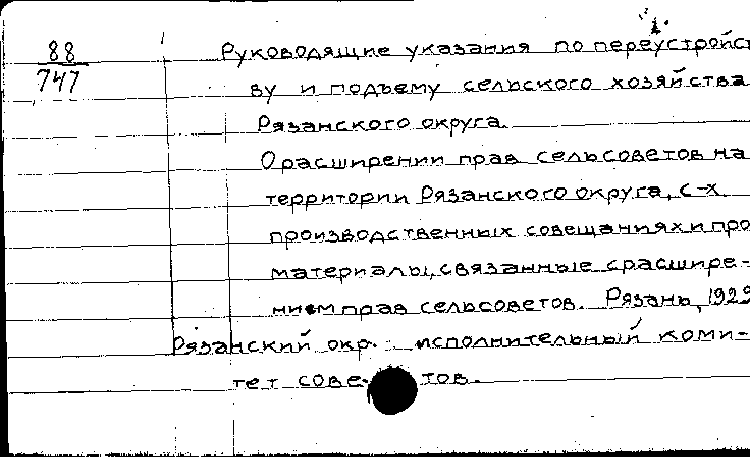 88
747
Руководящие указания по переустройст
ву и подъему сельского хозяйства
Рязанского округа.
О расширении прав сельсоветов на
территории Рязанского округа, с-х
производственных совещаниях и про
материалы, связанные с расшире-
нием прав сельсоветов. Рязань, 1929
Рязанский окр. исполнительный коми-
тет советов.